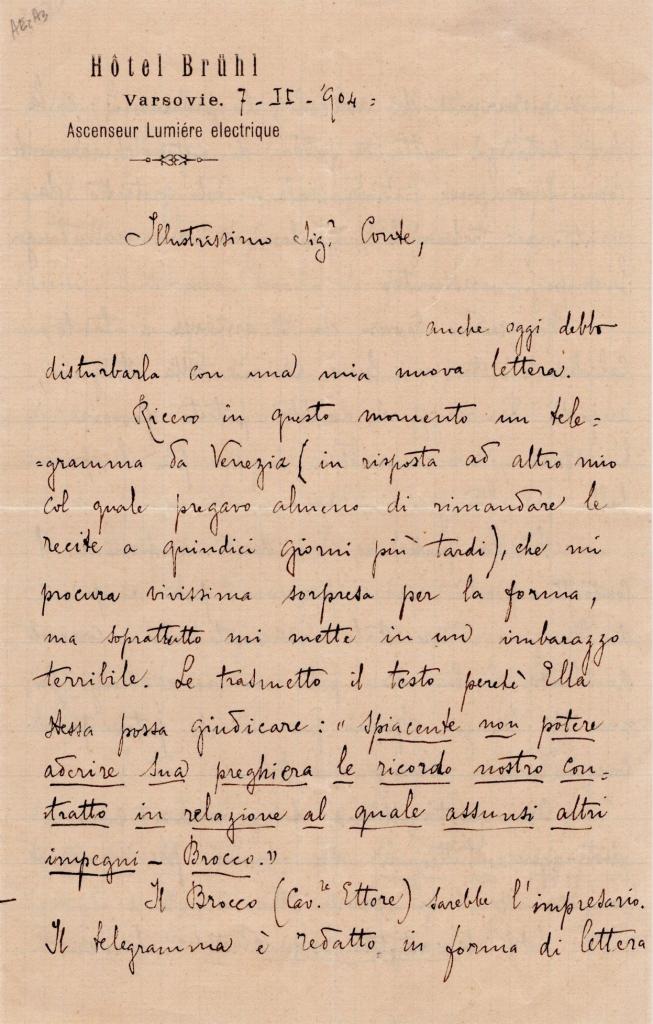 AE2A3
Hôtel Brühl
Varsovie. 7 - II - '904 =
Ascenseur Lumiére electrique
Illustrissimo Sig.r Conte,
anche oggi debbo
disturbarla con una mia nuova lettera.
Ricevo in questo momento un tele=
=gramma da Venezia (in risposta ad altro mio
col quale pregavo almeno di rimandare le
recite a quindici giorni più tardi), che mi
procura vivissima sorpresa per la forma,
ma soprattutto mi mette in un imbarazzo
terribile. Le trasmetto il testo perchè Ella
stessa possa giudicare: "Spiacente non potere
aderire sua preghiera le ricordo nostro con=
tratto in relazione al quale assunsi altri
impegni - Brocco."
Il Brocco (Cav.re Ettore) sarebbe l'impresario.
Il telegramma è redatto in forma di lettera